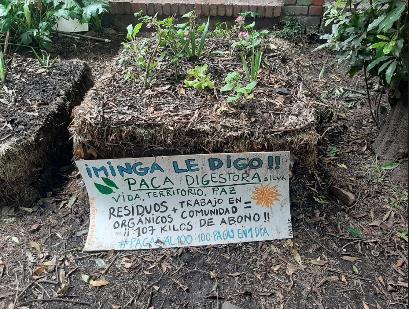 ¡MINGA LE DIGO!!
PACA DIGESTORA SILVA
VIDA, TERRITORIO, PAZ
RESIDUOS + TRABAJO EN =
ORGÁNICOS COMUNIDAD
¡¡ 107 KILOS DE ABONO!!
#PACAS AL 100 100 PACAS EN 1 DÍA